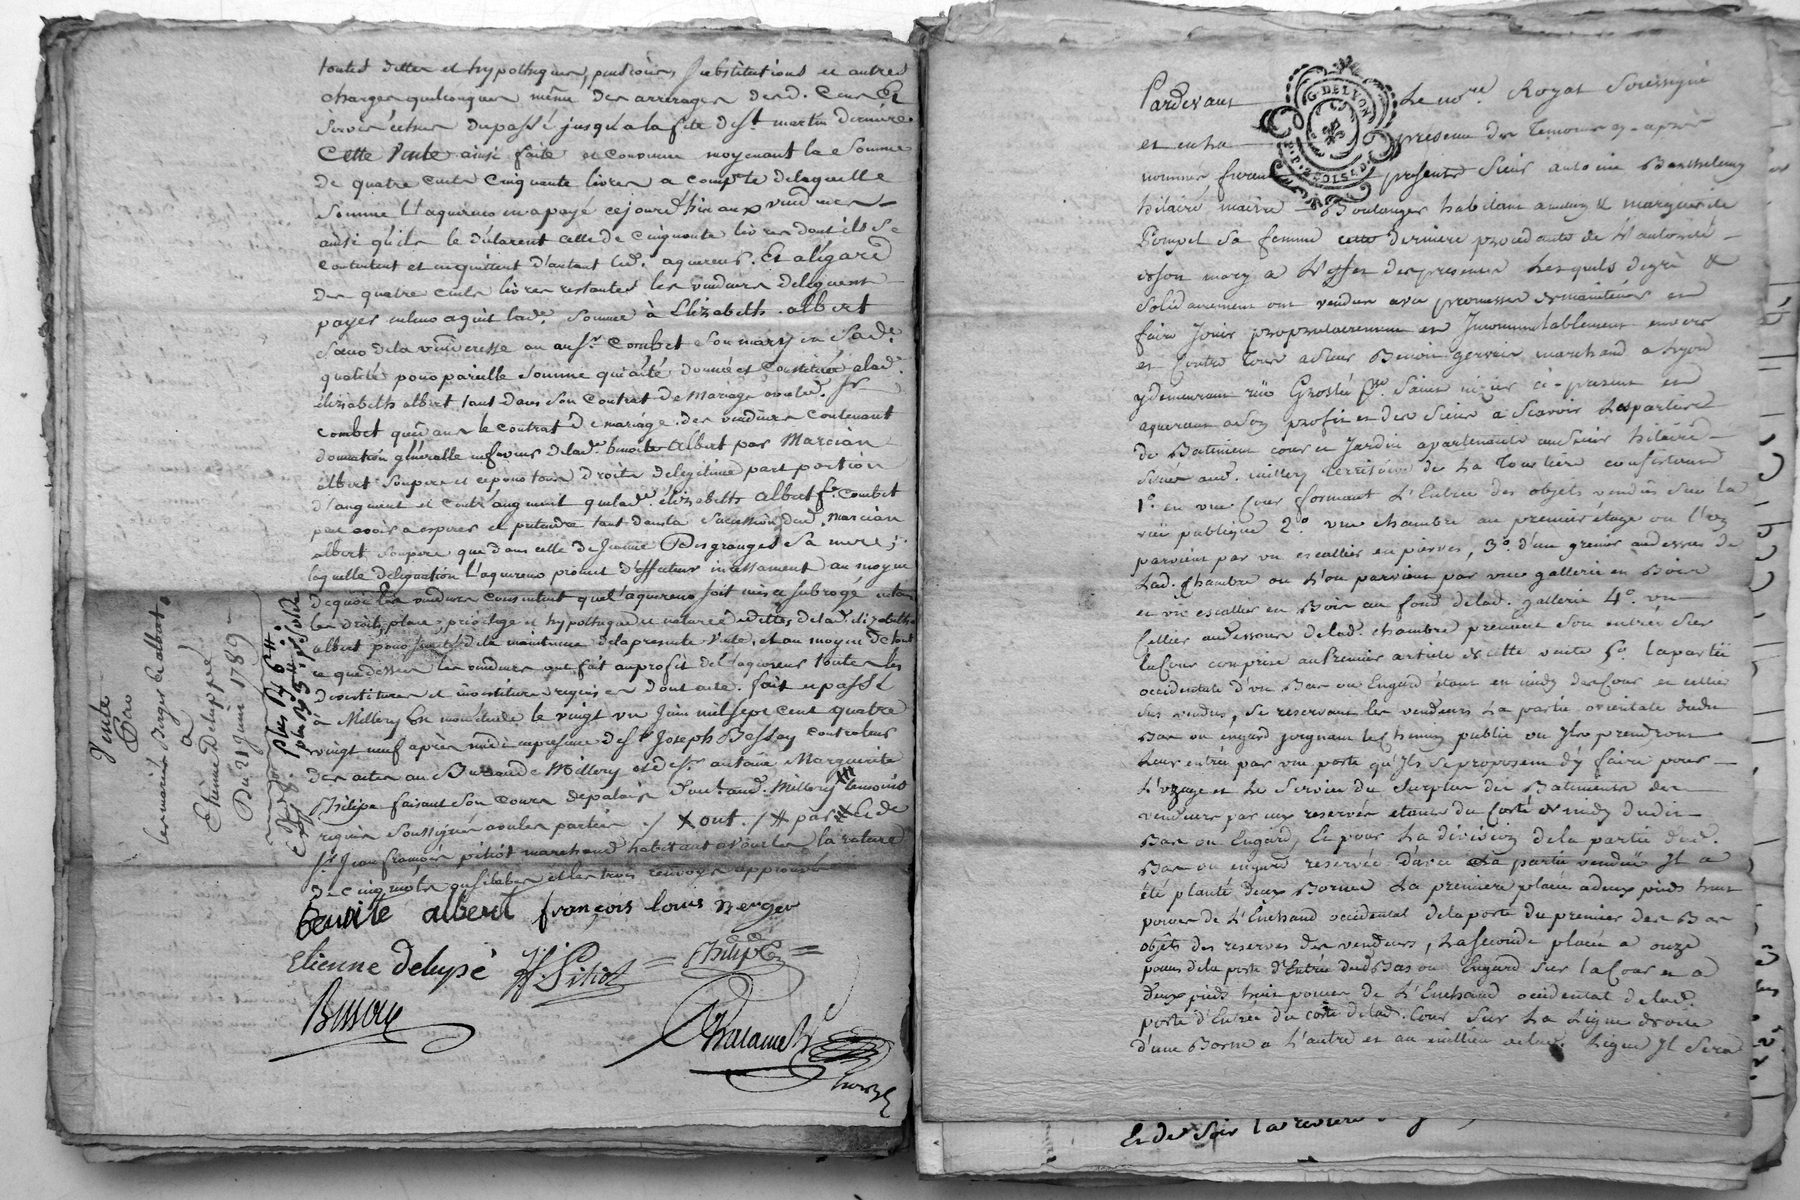 toutes dettes et hypotheques, pensions substitutions et autres
charges quelconques même des arrerages desd. Cens Et
servis échus du passé jusqu'a la fete de st. martin derniere
Cette Vente ainsi faite et convenue moyenant la Somme
de quatre cents Cinquante livres a compte de laquelle
Somme L'aquereur en a payé cejourd'hui aux vendeurs
ainsi qu'ils le déclarent celle de cinquante livres dont ils se
contentent et en quittent d'autant led. aquereur. Et al'égard
des quatre cents livres restantes les vendeurs deleguent
payer en leur aquit lad. somme à Elizabeth albert
Sœur de la venderesse ou au sr. Combet son mary en sad.
qualité pour pareille somme qui a été donnée et constituée alad.
élizabeth albert tant dans son contrat de mariage avec led. sr
Combet que dans le contrat de mariage des vendeurs contenant
donnation généralle en faveur de lad. benoite albert par Marcian
albert son pere et ce pour tous droits de legitime part portion
d'augment et contr'augment que lad. élizabeth albert fe. Combet
peut avoir a esperer et pretendre tant dans la succession dud. marcian
albert son pere que dans celle de Jeanne Desgranges sa mere;
laquelle délégation L'aquereur promet d'effectuer incessament au moyen
de quoi les vendeurs consentent que l'aquereur soit mis et subrogé en tous
les droits, place, privilege et hypotheque et nature de dettes de lad. elizabeth
albert pour sureté de la maintenue de la presente vente, et au moyen de tout
ce que dessus les vendeurs ont fait au profit de l'aquereur toutes les
devestitures et investitures requises dont acte. fait et passé
a Millery En mon étude le vingt un Juin mil sept cent quatre
vingt neuf après midi en presence de sr. Joseph Bessoy controleur
des actes au Bureau de Millery et de sr. antoine Marguerite
Philipe faisant son cours de palais d'eut. aud. Millery témoins
requis soussignés avec les parties ./. X ont. / # par # Et de
sr. Jean françois pitiot marchand habitant a Vourles la rature
de cinq mots qu'silabes et les trois renvoys approuvés
Benoite albert françois louis Berger
Etienne delupé Jf. Pitiot = Philipe =
Bessoy
Vente
Par
les mariés Berger et albert
a
Etienne Delupé
Du 21 Juin 1789
Pardevant Le nore. Royal Soussigné
G. DELYON
et en la presence des Temoins cy-après
nommés furent presents Sieur antoine Barthelemy
hilaire maitre Boulanger habitant a millery & marguerite
Pompet Sa femme cette derniere procedante de L'autorité
de son mary a L'effet des presentes Lesquels de gré &
solidairement ont vendu avec promesse de maintenir et
faire Jouir proprietairement et Incommutablement envers
et Contre Tous a sieur Benoit gervais marchand a Lyon
y demeurant rüe Grolée pse. Saint nizier ci-present et
aquereur a son profit et des siens a Scavoir Les parties
de Batiment cour et Jardin apartenants aud sieur hilaire
situés aud. millery Territoire de La Tourtiere consistant
1o. en une Cour formant L'Entrée des objets vendus sur la
rüe publique 2o. une chambre au premier étage ou l'on
parvient par un escallier en pierres, 3o. d'un grenier au dessus de
Lad. chambre ou L'on parvient par une gallerie en Bois
et un escallier en Bois au fond de lad. gallerie 4o. un
Cellier au dessous de lad. chambre prenant son entrée sur
la Cour comprise au Premier article de cette vente 5o. la partie
occidentale d'un Bas ou Engard étant en midy des Cour et cellier
sus vendus, se reservant les vendeurs La partie orientale dudit
Bas ou engard joignant le Chemin public ou Ils prendront
Leur entrée par une porte qu'Ils se proposent d'y faire pour
L'uzage et Le Service du Surplus des Batiments des
vendeurs par eux reservés etant du Coté de midy dudit
Bas ou Engard, Et pour La division de la partie dud.
Bas ou engard reservée d'avec La partie vendue Il a
été planté deux Bornes La premiere placée a deux pieds huit
pouces de L'Enchand occidental de la porte du premier des Bas
objets des reserves des vendeurs, La seconde placée a onze
pouces de la porte d'Entrée dud Bas ou Engard sur la Cour et a
deux pieds huit pouces de L'Enchand occidental de lad.
porte d'Entrée du coté de lad. Cour Sur La Ligne droite
d'une Borne a L'autre et au millieu de lad. Ligne Il sera